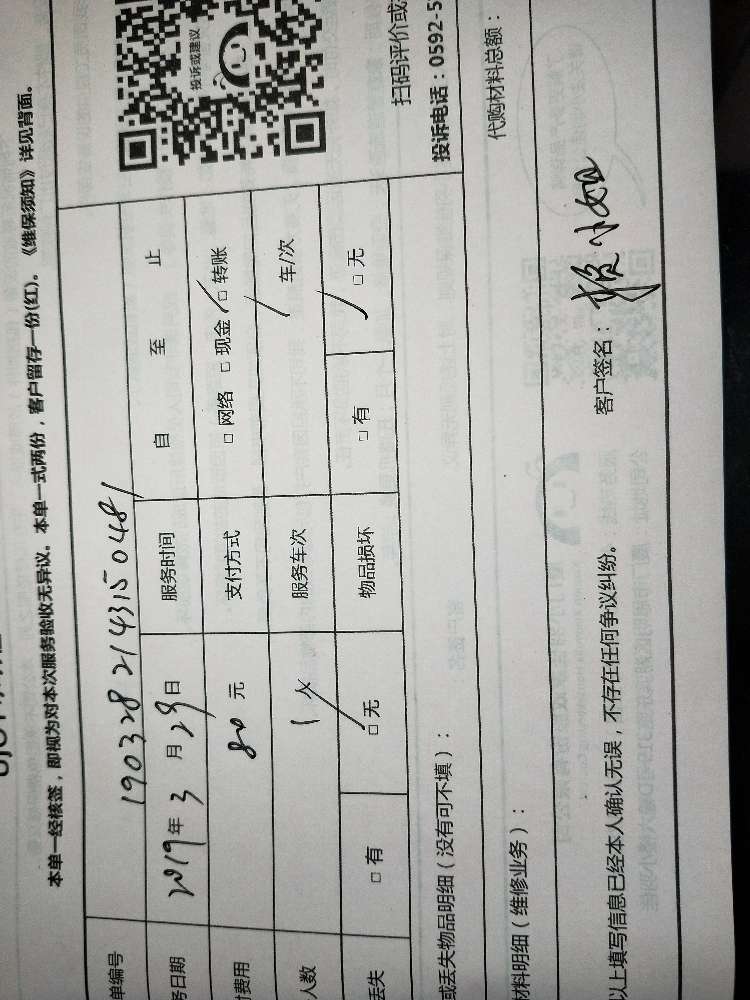 本单一经核签，即视为对本次服务验收无异议。本单一式两份，客户留存一份(红)。《维保须知》详见背面。
单编号 190328214315 0481
务日期 2019年 3 月 29日 服务时间 自 至 止
费用 80 元 支付方式 □ 网络 □ 现金 □ 转账
人数 1人 服务车次 / 车/次
丢失 □ 有 □ 无 物品损坏 □ 有 □ 无
投诉或建议
扫码评价或
投诉电话：0592-5
或丢失物品明细（没有可不填）：
材料明细（维修业务）： 代购材料总额：
以上填写信息已经本人确认无误，不存在任何争议纠纷。 客户签名：